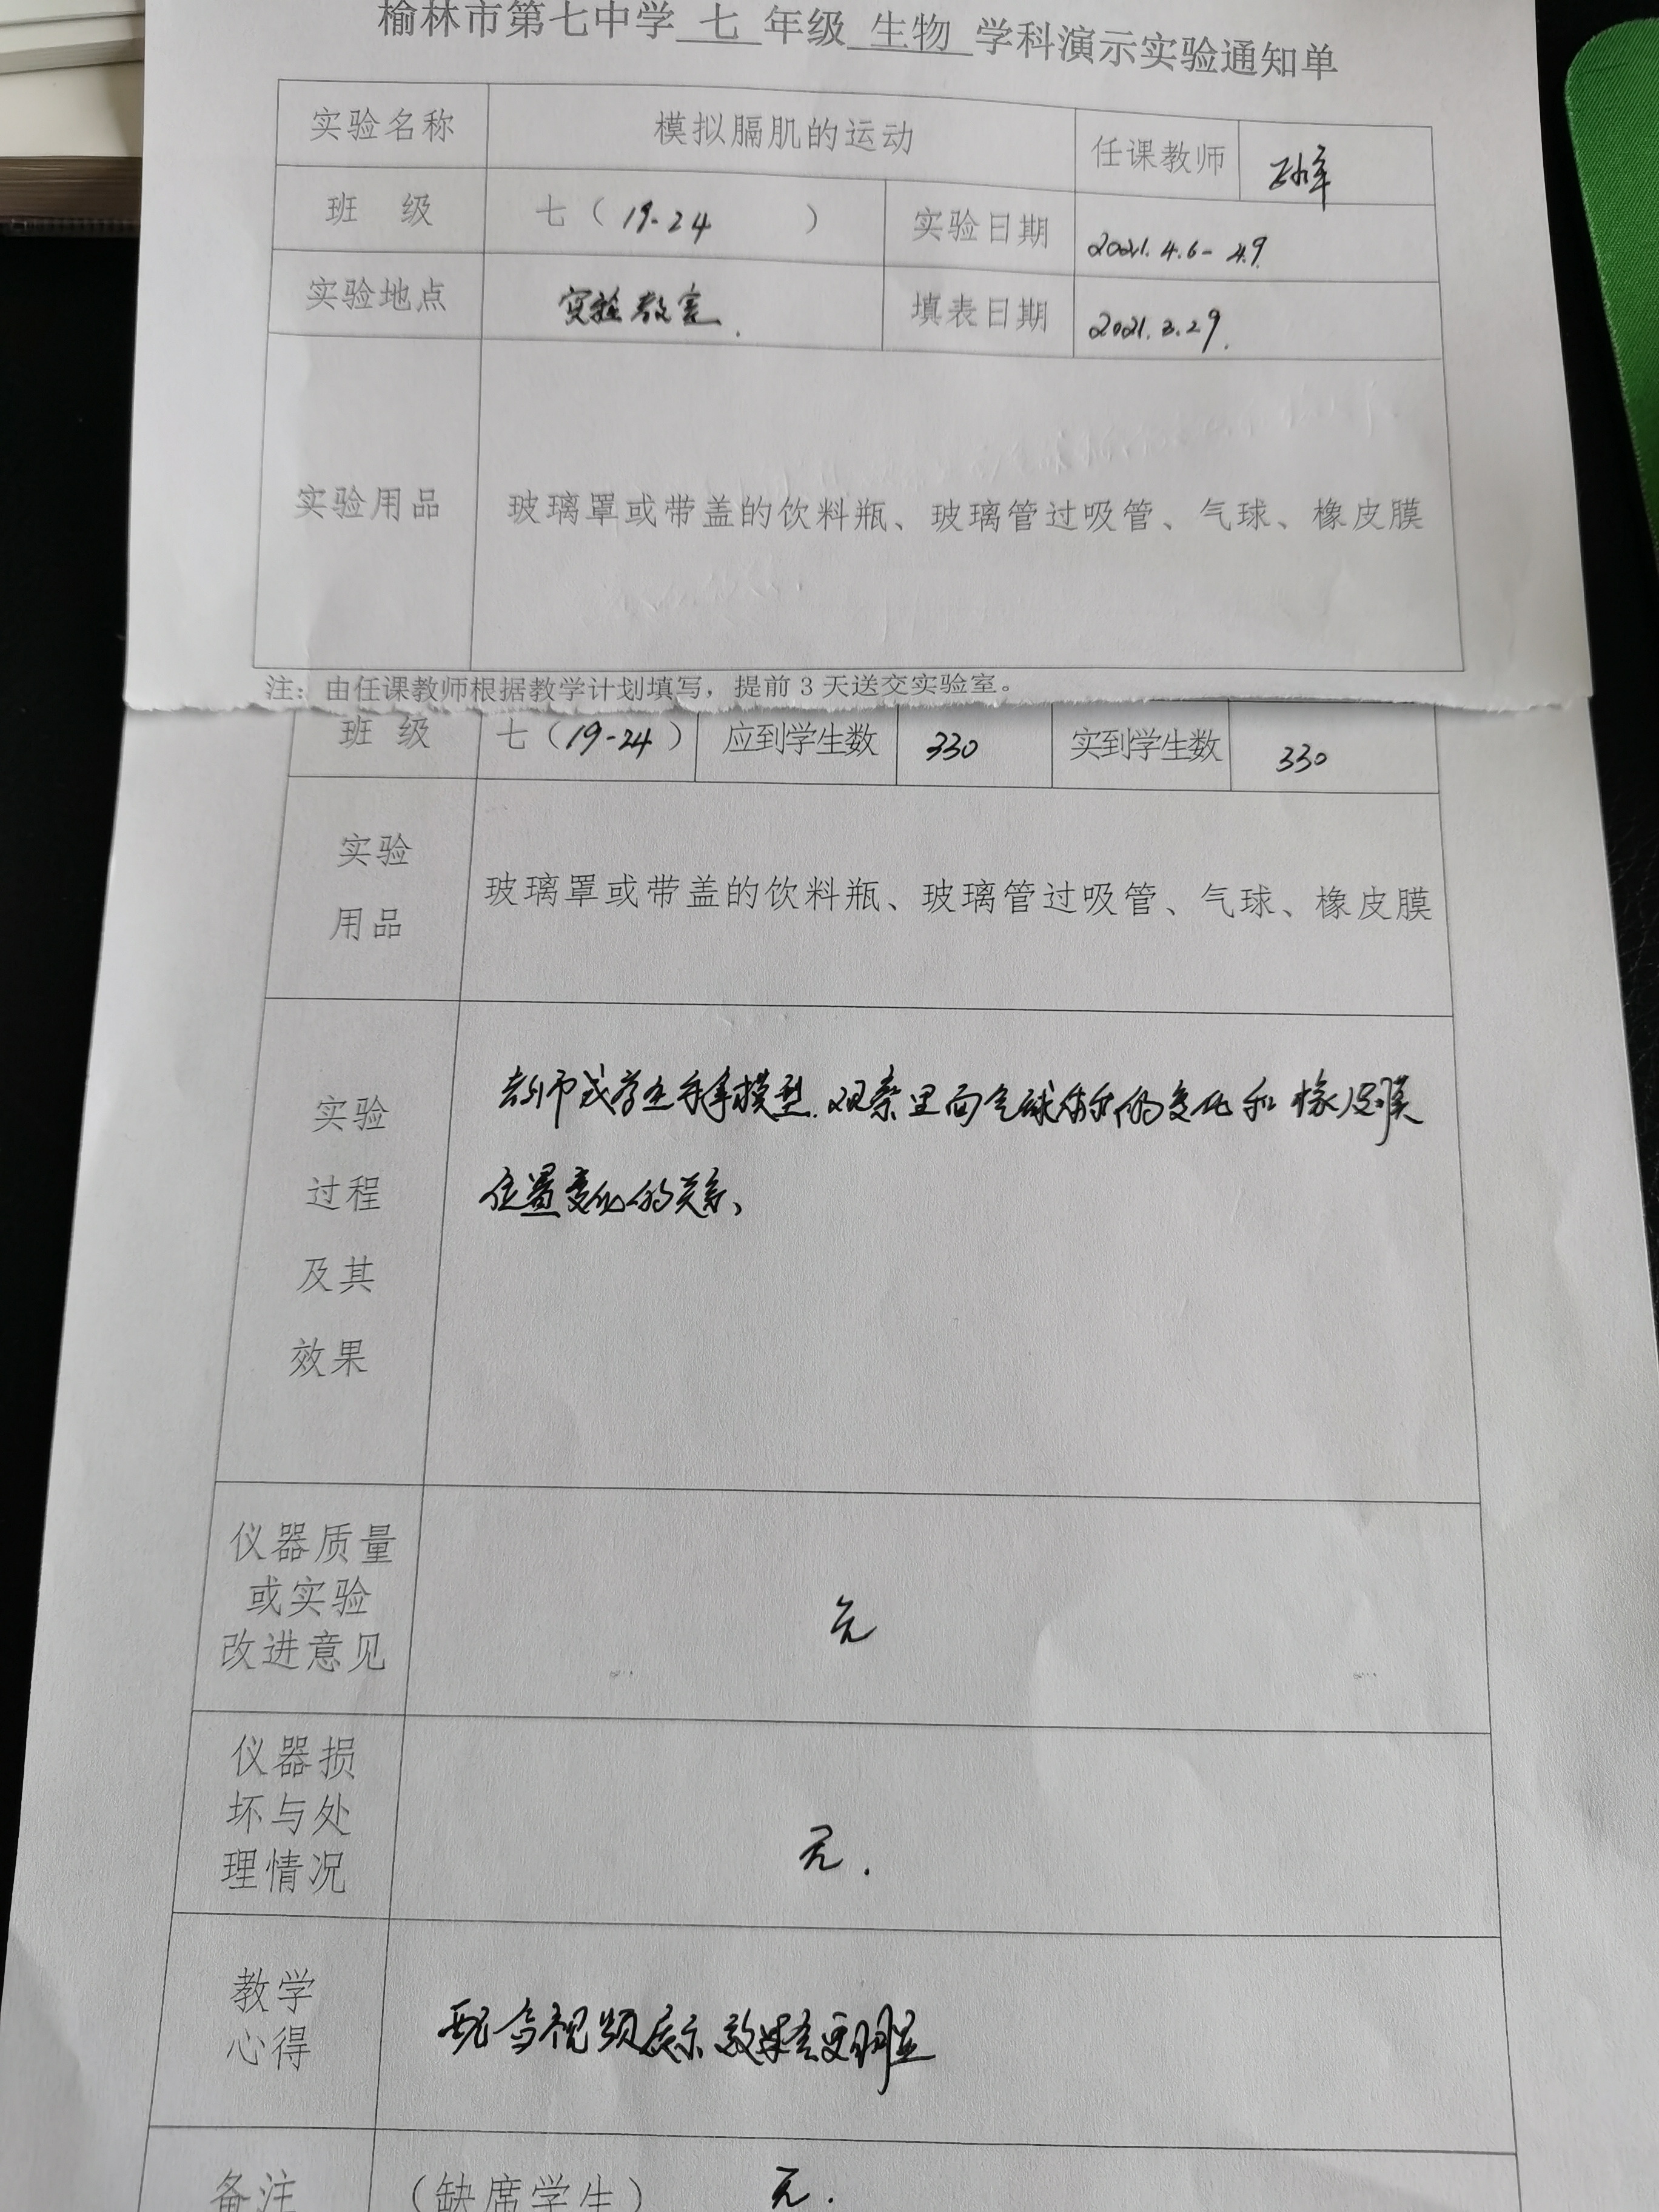 榆林市第七中学 七 年级 生物 学科演示实验通知单
实验名称 模拟膈肌的运动 任课教师
班 级 七（19-24） 实验日期 2021.4.6-4.9
实验地点 实验教室. 填表日期 2021.3.29.
实验用品 玻璃罩或带盖的饮料瓶、玻璃管过吸管、气球、橡皮膜
注：由任课教师根据教学计划填写，提前3天送交实验室。
班 级 七（19-24） 应到学生数 330 实到学生数 330
实验
用品
玻璃罩或带盖的饮料瓶、玻璃管过吸管、气球、橡皮膜
实验
过程
及其
效果
教师或学生手拿模型.观察里面气球体积的变化和橡皮膜
位置变化的关系、
仪器质量
或实验
改进意见
无
仪器损
坏与处
理情况
无.
教学
心得
配合视频展示效果会更明显
备注 （缺席学生） 无.